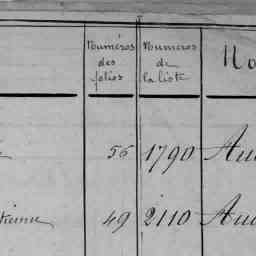 Numéros des folios
Numeros de la liste
No
56 1790 Au
49 2110 Au